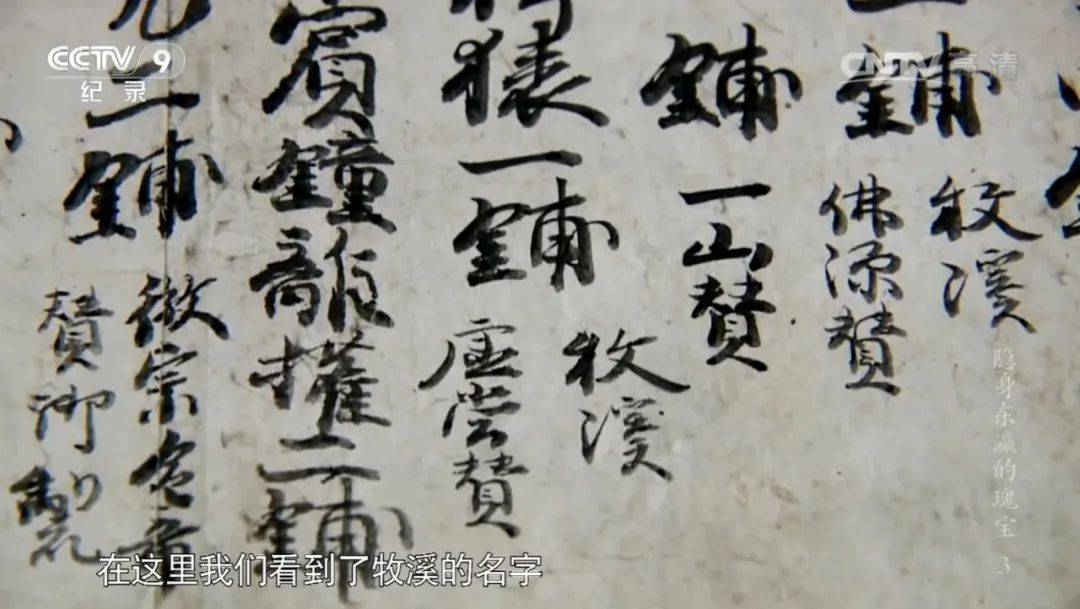 CCTV 9
纪录
CNTV 高清
鋪
牧溪
佛源賛
鋪
一山賛
猿一鋪
牧溪
虚堂賛
賓鐘離權二鋪
二鋪
徽宗
賛御製
隐身东瀛的瑰宝 3
在这里我们看到了牧溪的名字